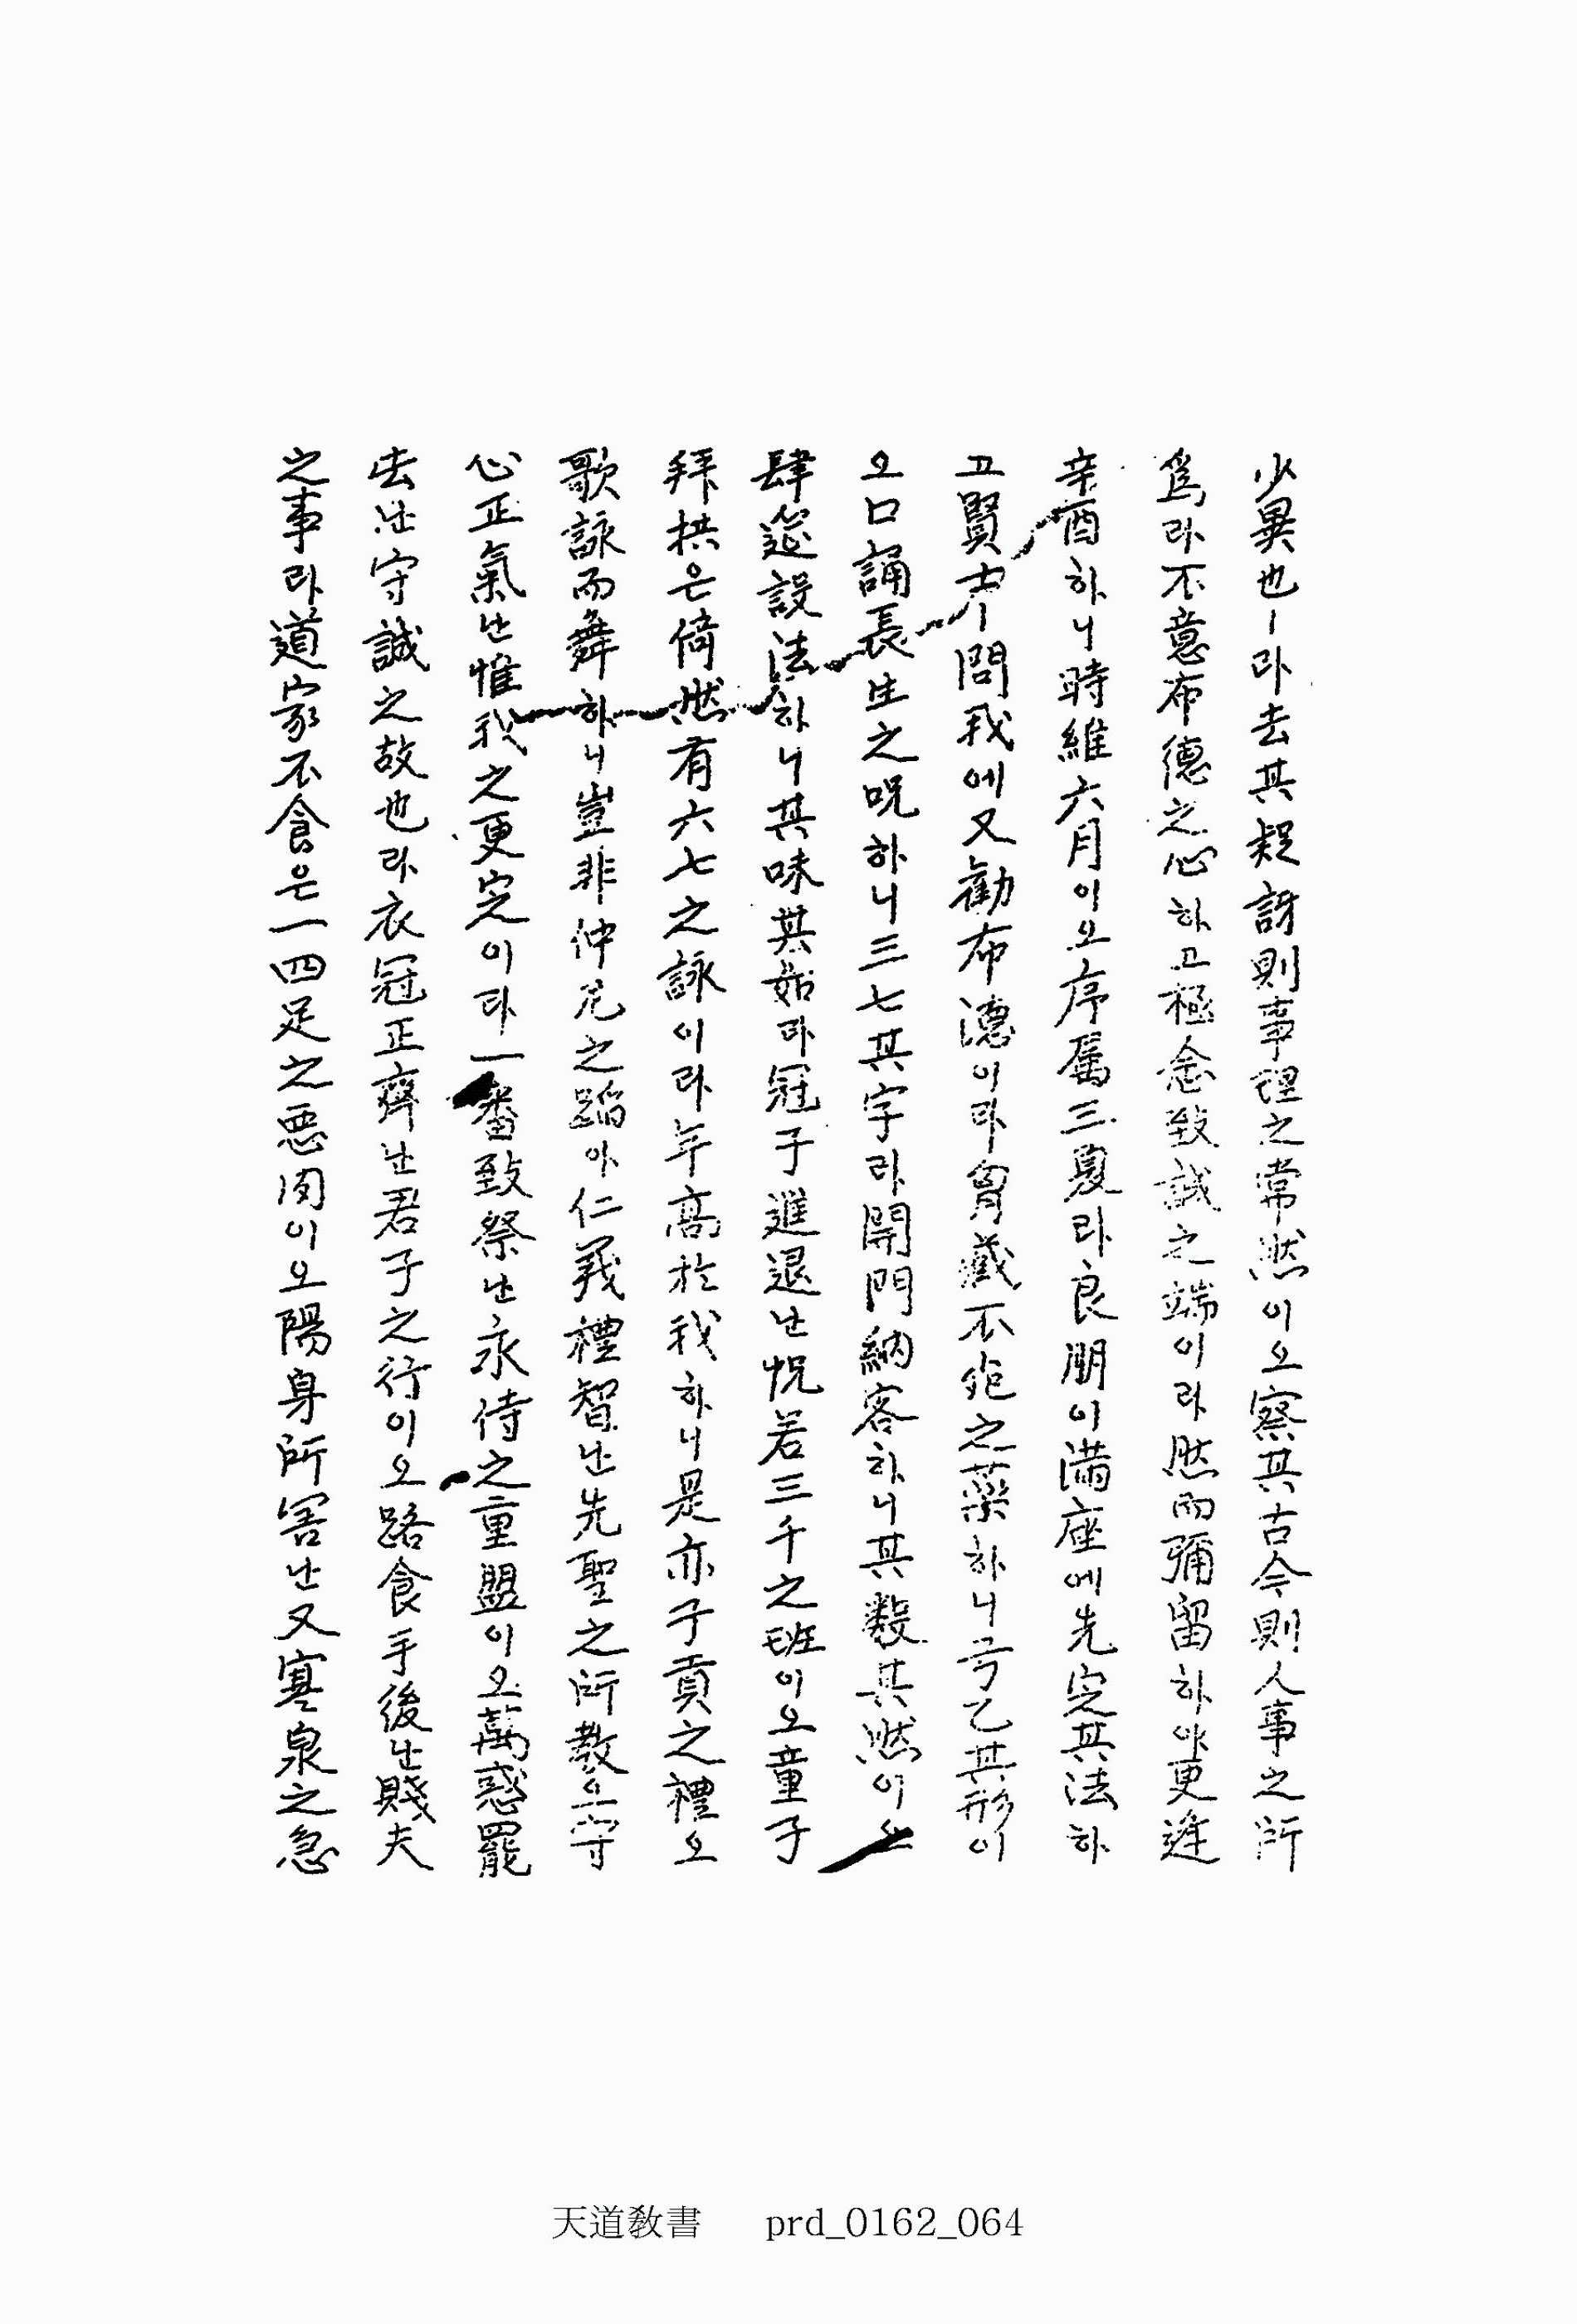 少異也ㅣ라去其疑訝則事理之常然이오察其古今則人事之所
爲라不意布德之心하고極念致誠之端이라然而彌留하야更逢
辛酉하니時維六月이오序屬三夏라良朋이滿座에先定其法하
고賢士問我에又勸布德이라胷藏不死之藥하니弓乙其形이
오口誦長生之呪하니三七其字라開門納客하니其數其然이오
肆筵設法하니其味其如라冠子進退난怳若三千之班이오童子
拜拱은倚然有六七之詠이라年高於我하니是亦子貢之禮오
歌詠而舞하니豈非仲尼之蹈아仁義禮智난先聖之所敎오守
心正氣난惟我之更定이라一番致祭난永侍之重盟이오萬惑罷
去난守誠之故也라衣冠正齊난君子之行이오路食手後난賤夫
之事라道家不食은一四足之惡肉이오陽身所害난又寒泉之急
天道敎書 prd_0162_064